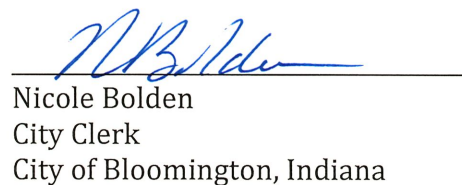 N Bolden
Nicole Bolden
City Clerk
City of Bloomington, Indiana